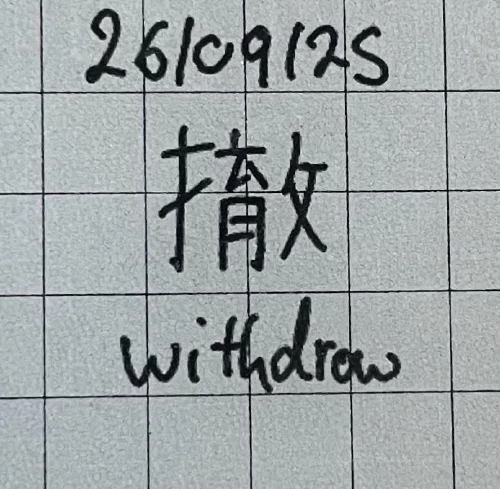 26/09/25
撤
withdraw